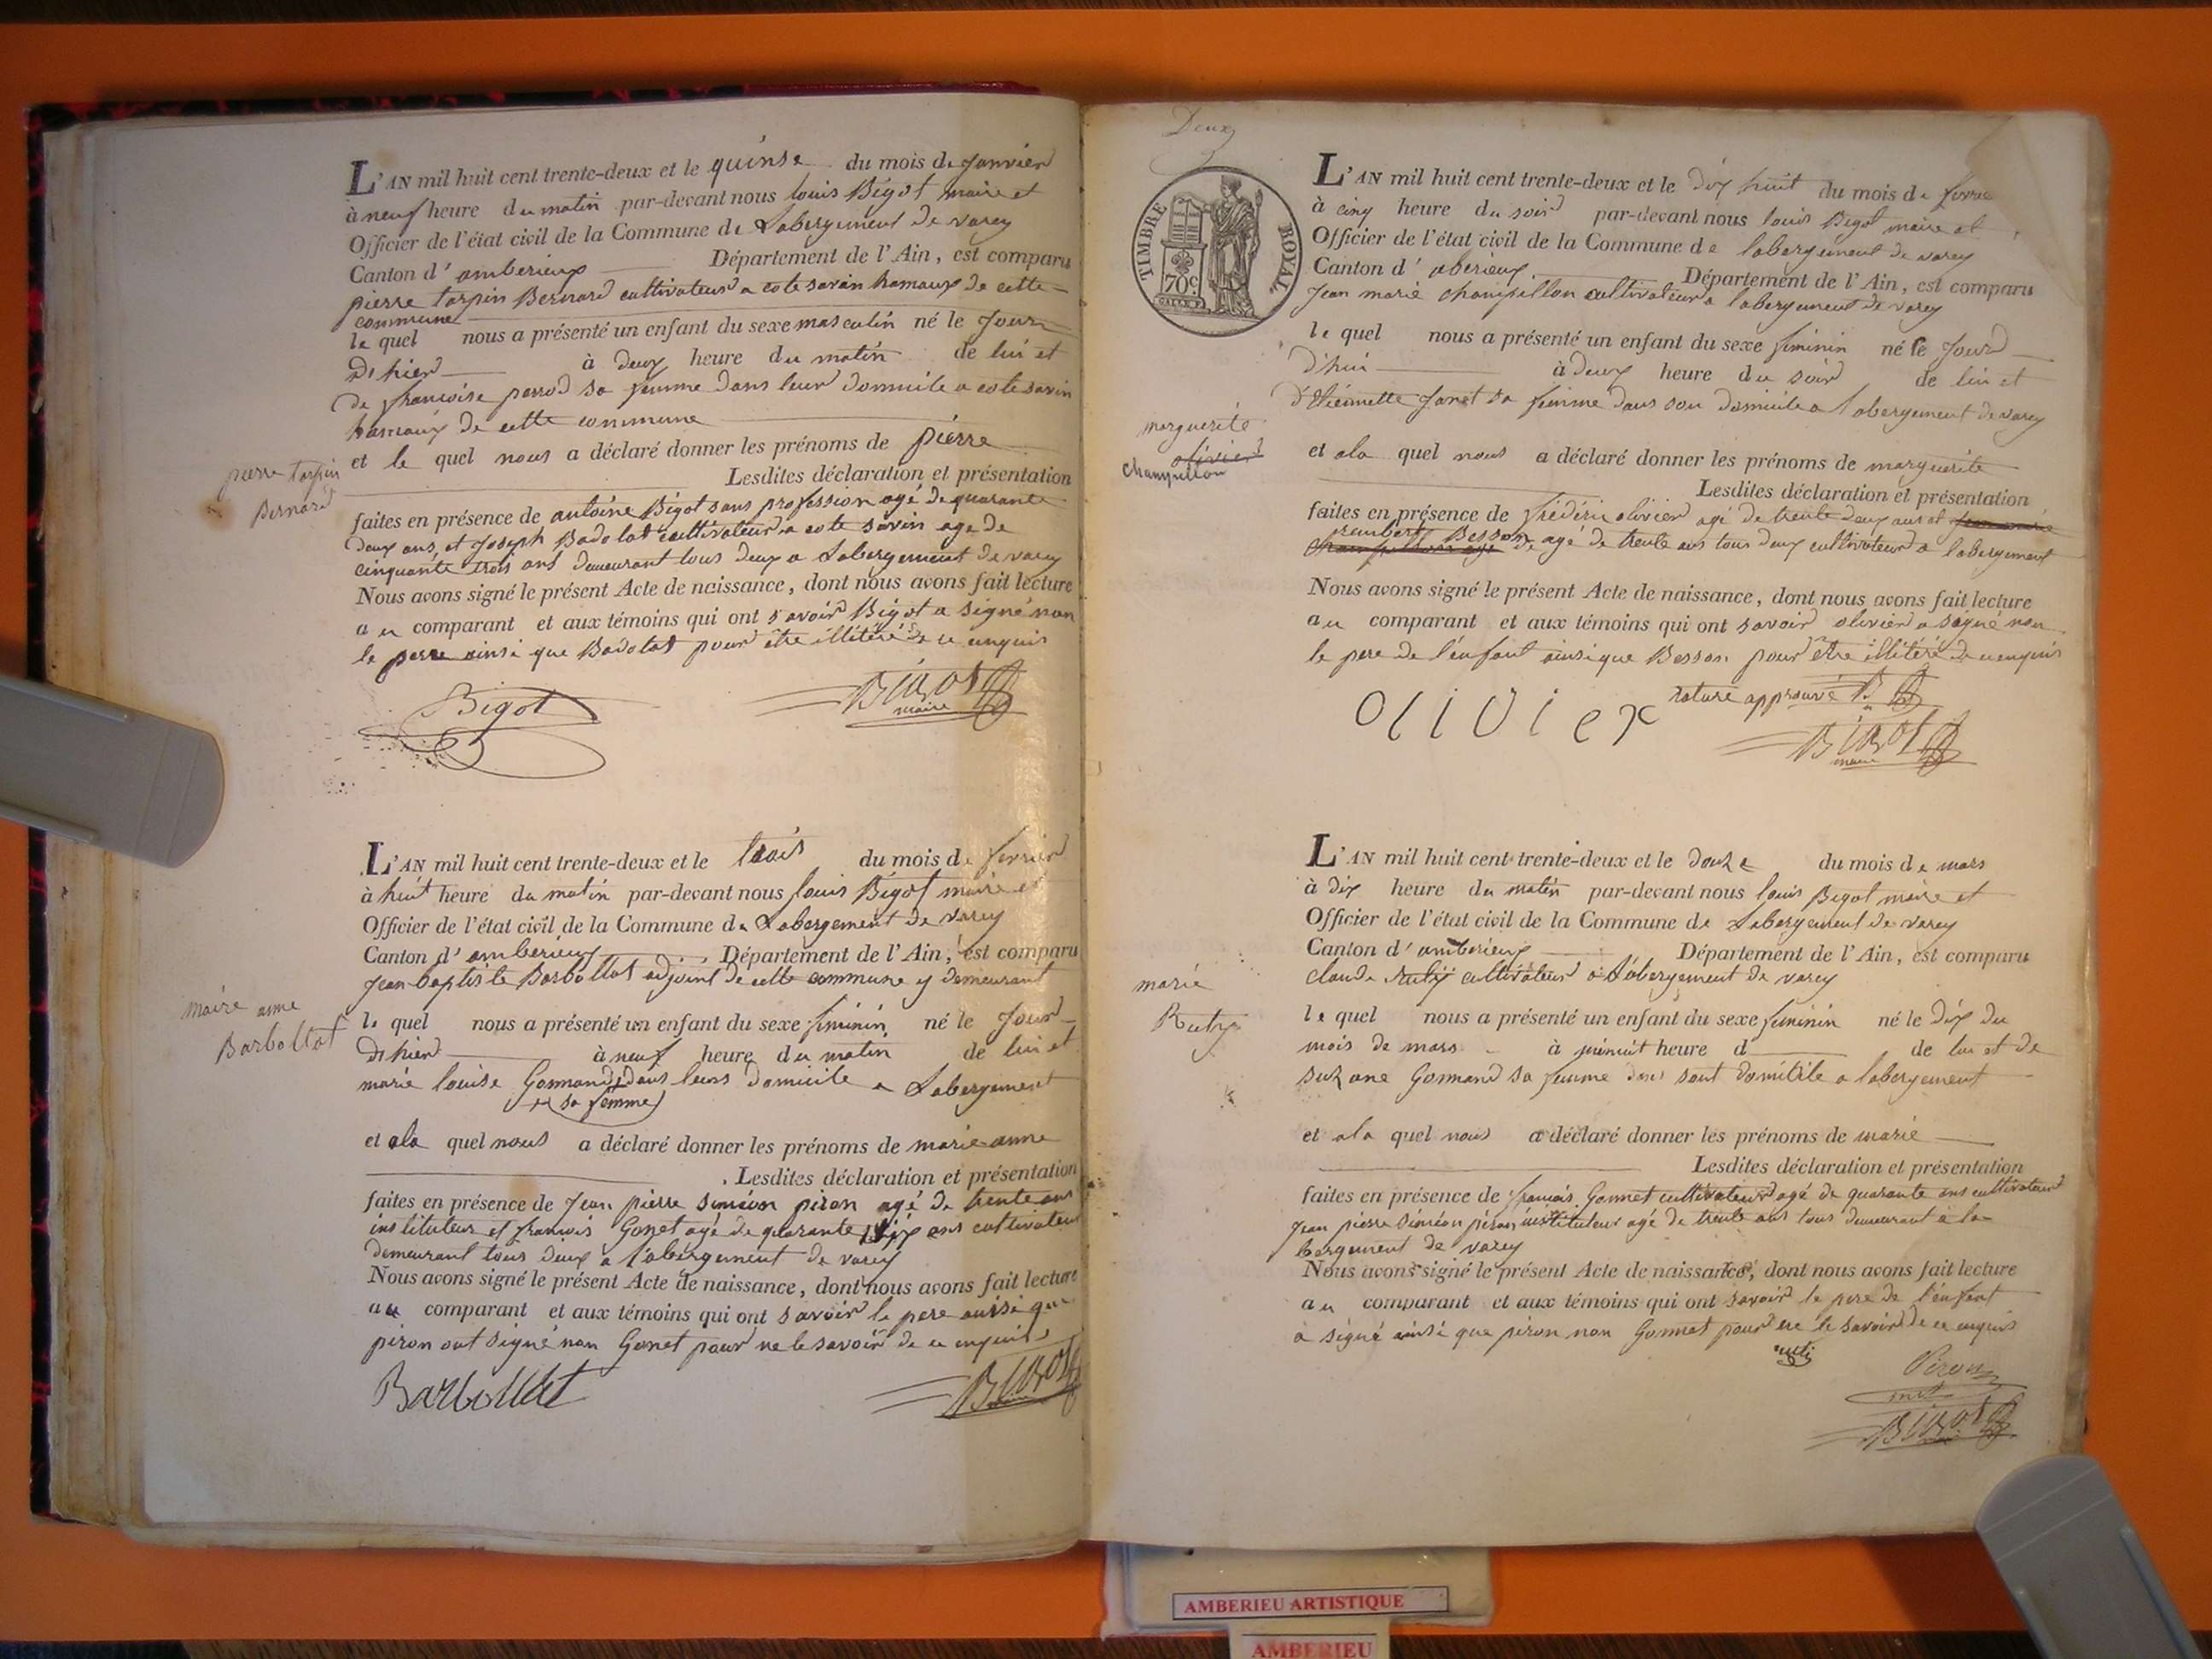 L'AN mil huit cent trente-deux et le quinse du mois de Janvier
à neuf heure du matin par-devant nous louis Bigot maire et
Officier de l'état civil de la Commune de Labergement de varey
Canton d'amberieux Département de l'Ain, est comparu
pierre tarpin Bernard cultivateur a cote savin hamaux de cette
commune
le quel nous a présenté un enfant du sexe masculin né le Jour
D'hier à deux heure du matin de lui et
De francoise perrod sa femme dans leur domicile a cote savin
hamaux de cette commune
et le quel nous a déclaré donner les prénoms de pierre
pierre tarpin
Bernard
Lesdites déclaration et présentation
faites en présence de antoine Bigot sans profession agé de quarante
deux ans, et Joseph Badolat cultivateur a cote savin age de
cinquante trois ans demeurant tous deux a Labergement de varey
Nous avons signé le présent Acte de naissance, dont nous avons fait lecture
au comparant et aux témoins qui ont savoir Bigot a signé non
le pere ainsi que Badolat pour être illitéré de ce enquis
Bigot
Bigot
maire
L'AN mil huit cent trente-deux et le trois du mois de fevrier
à huit heure du matin par-devant nous louis Bigot maire et
Officier de l'état civil de la Commune de Labergement de varey
Canton d'amberieux Département de l'Ain, est comparu
Jean baptiste Barbollat adjoint de cette commune y demeurant
maire anne
Barbollat
le quel nous a présenté un enfant du sexe feminin né le Jour
D'hier à neuf heure du matin de lui et
marie louise Gormand dans leurs domicile a Labergement
sa femme
et a la quel nous a déclaré donner les prénoms de marie anne
Lesdites déclaration et présentation
faites en présence de Jean pierre siméon piron agé de trente ans
instituteur et francois Gonet agé de quarante dix ans cultivateur
demeurant tous deux a l'abergement de varey
Nous avons signé le présent Acte de naissance, dont nous avons fait lecture
au comparant et aux témoins qui ont savoir le pere aussi que
piron ont signé non Gonet pour ne le savoir de ce enquis
Barbollat
Bigot
Deux
TIMBRE ROYAL
70c
L'AN mil huit cent trente-deux et le dix huit du mois de fevrie
à cinq heure du soir par-devant nous louis Bigot maire et
Officier de l'état civil de la Commune de labergement de varey
Canton d'aberieux Département de l'Ain, est comparu
Jean marie champillon cultivateur a labergement de varey
le quel nous a présenté un enfant du sexe feminin né le Jour
d'hui à deux heure du soir de lui et
d'Etiennette Janet sa femme dans son domicile a labergement de varey
marguerite
olivier
champillon
et a la quel nous a déclaré donner les prénoms de marguerite
Lesdites déclaration et présentation
faites en présence de frédéric olivier agé de trente deux ans et Jean marie
rembert Besson
champillon age de agé de trente ans tous deux cultivateur a labergement
Nous avons signé le présent Acte de naissance, dont nous avons fait lecture
au comparant et aux témoins qui ont savoir olivier a signé non
le pere de l'enfant ainsi que Besson pour être illitéré de ce enquis
rature approuvé B
olivier
Bigot
maire
L'AN mil huit cent trente-deux et le douze du mois de mars
à dix heure du matin par-devant nous louis Bigot maire et
Officier de l'état civil de la Commune de Labergement de varey
Canton d'amberieux Département de l'Ain, est comparu
claude Ruty cultivateur a Labergement de varey
marie
Ruty
le quel nous a présenté un enfant du sexe feminin né le dix du
mois de mars à minuit heure d de lui et de
suzane Gormand sa femme dans sont domicile a labergement
et a la quel nous a déclaré donner les prénoms de marie
Lesdites déclaration et présentation
faites en présence de francois Gonnet cultivateur agé de quarante ans cultivateur
Jean pierre siméon piron instituteur agé de trente ans tous demeurant a la
bergement de varey
Nous avons signé le présent Acte de naissance, dont nous avons fait lecture
au comparant et aux témoins qui ont savoir le pere de l'enfant
a signé ainsi que piron non Gonnet pour ne le savoir de ce enquis
ruti
Piron
Bigot
AMBERIEU ARTISTIQUE
AMBERIEU